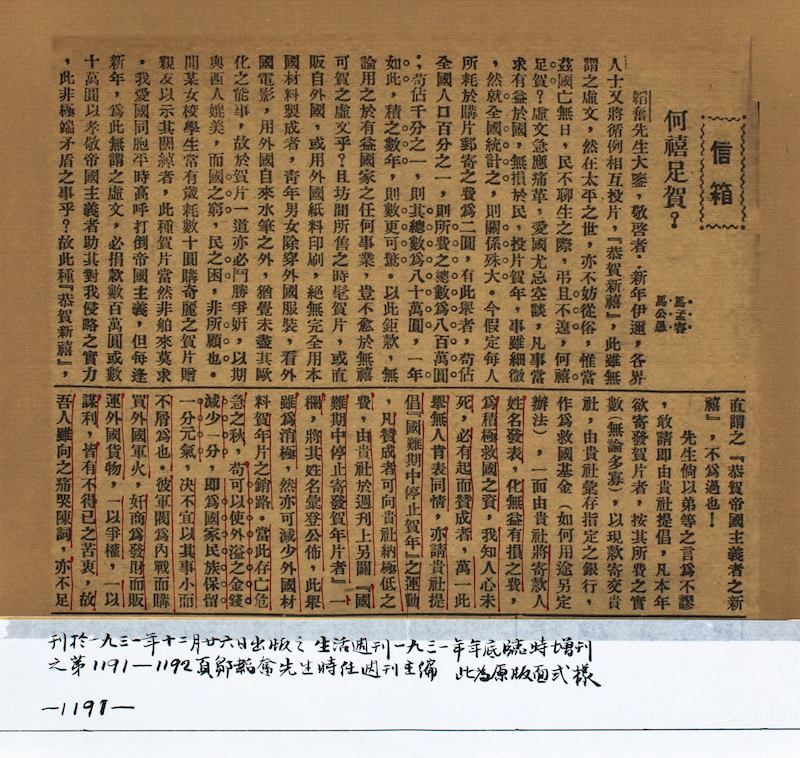 信箱
何禧足賀？
馬孟容
馬公愚
韜奮先生大鑒，敬啓者：新年伊邇，各界
人士又將循例相互投片，『恭賀新禧』，此雖無
謂之虛文，然在太平之世，亦不妨從俗，惟當
茲國亡無日，民不聊生之際，弔且不遑，何禧
足賀？虛文急應痛革，愛國尤忌空談，凡事當
求有益於國，無損於民，投片賀年，事雖細微
，然就全國統計之，則關係殊大。今假定每人
所耗於購片郵寄之費爲二圓，有此舉者，苟佔
全國人口百分之一，則所費之總數爲八百萬圓
；苟佔千分之一，則其總數爲八十萬圓，一年
如此，積之數年，則數更可驚。以此鉅款，無
論用之於有益國家之任何事業，豈不愈於無禧
可賀之虛文乎？且坊間所售之時髦賀片，或直
販自外國，或用外國紙料印刷，絕無完全用本
國材料製成者，靑年男女除穿外國服裝，看外
國電影，用外國自來水筆之外，猶覺未盡其歐
化之能事，故於賀片一道亦必鬥勝爭姸，以期
與西人媲美，而國之窮，民之困，非所顧也。
聞某女校學生常有歲耗數十圓購奇麗之賀片贈
親友以示其闊綽者，此種賀片當然非舶來莫求
。我愛國同胞平時高呼打倒帝國主義，但每逢
新年，爲此無謂之虛文，必捐款數百萬圓或數
十萬圓以孝敬帝國主義者助其對我侵略之實力
，此非極端矛盾之事乎？故此種『恭賀新禧』，
直謂之『恭賀帝國主義者之新
禧』，不爲過也！
先生倘以弟等之言爲不謬
，敢請即由貴社提倡，凡本年
欲寄發賀片者，按其所費之實
數（無論多寡），以現款寄交貴
社，由貴社彙存指定之銀行，
作爲救國基金（如何用途另定
辦法），一面由貴社將寄款人
姓名發表，化無益有損之費，
爲積極救國之資，我知人心未
死，必有起而贊成者，萬一此
舉無人肯表同情，亦請貴社提
倡『國難期中停止賀年』之運動
，凡贊成者可向貴社納極低之
費，由貴社於週刊上另闢『國
難期中停止寄發賀年片者』一
欄，將其姓名彙登公佈，此舉
雖爲消極，然亦可減少外國材
料賀年片之銷路。當此存亡危
急之秋，苟可以使外溢之金錢
減少一分，即爲國家民族保留
一分元氣，決不宜以其事小而
不屑爲也。彼軍閥爲內戰而購
買外國軍火，奸商爲發財而販
運外國貨物，一以爭權，一以
謀利，皆有不得已之苦衷，故
吾人雖向之痛哭陳詞，亦不足
刊於一九三一年十二月廿六日出版之生活週刊一九三一年年底臨時增刊
之第1191—1192頁鄒韜奮先生時任週刊主編 此為原版面式樣
—1191—